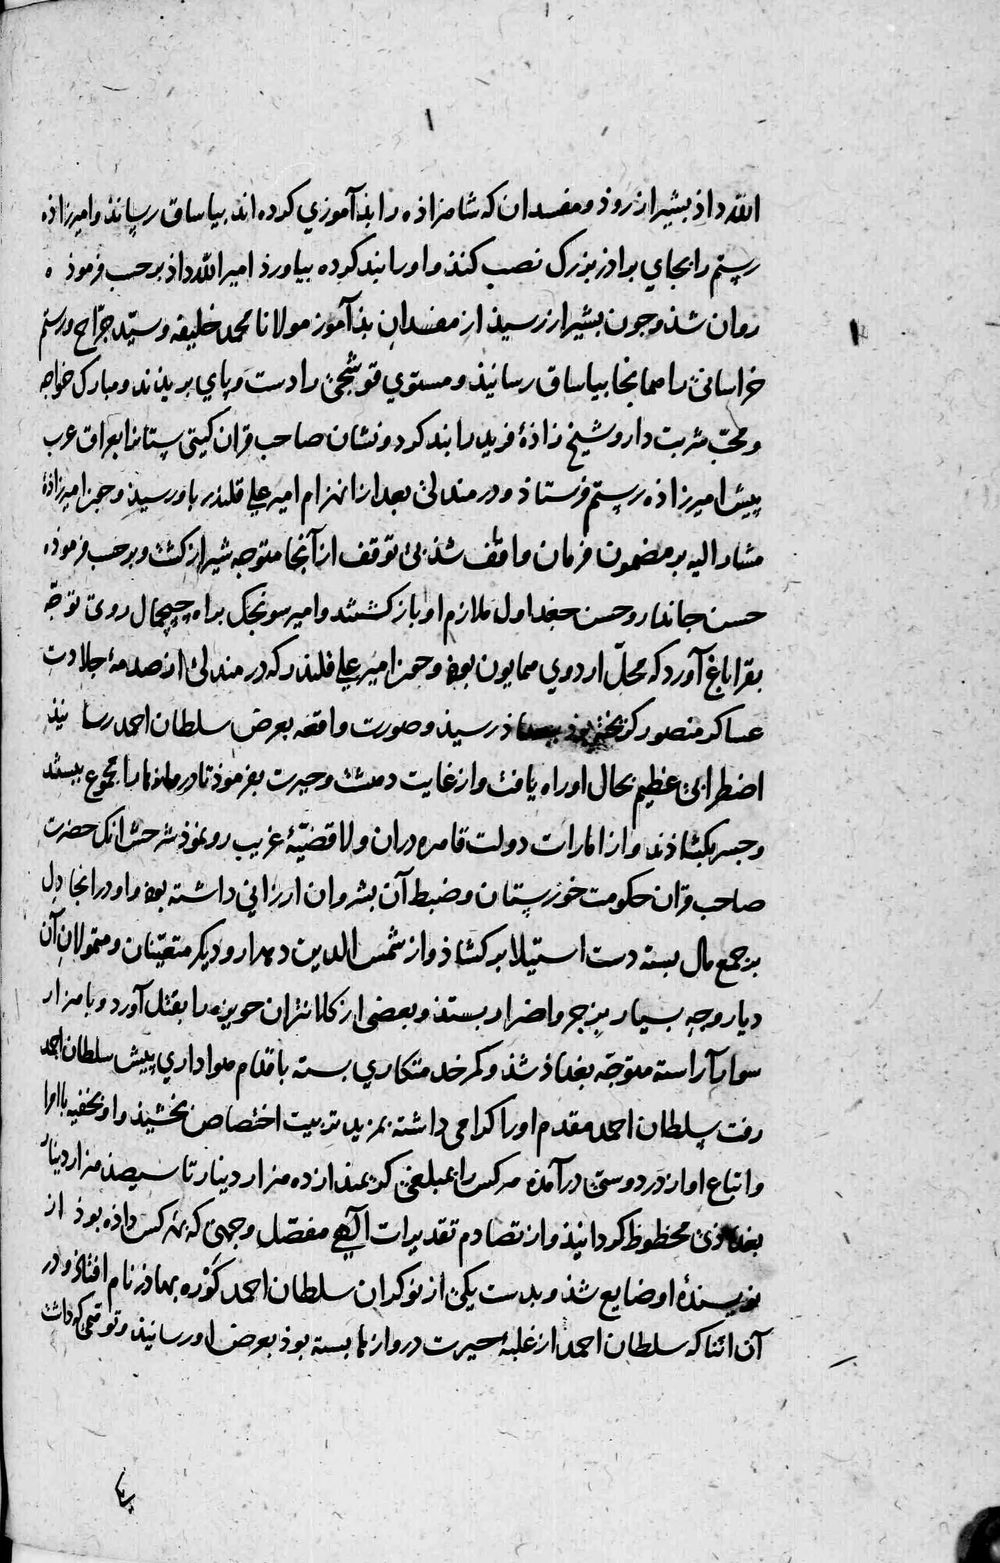 الله داذ بشیراز روذ و مفسدان که شاهزاذه را بذآموزی کرده اند بیاساق رساند و امیرزاذه
رستم را بجای براذر بزرک نصب کنذ و اورا بند کرده بیاورذ امیر الله داذ بر حسب فرموذه
روان شذ و چون بشیراز رسیذ از مفسدان بذآموز مولانا محمد خلیفه و سیّد جرّاح و رستم
خراسانی را همانجا بیاساق رسانیذ و مستوی قوشجی را دست و پای بریذند و مبارک خواجه
و محبّ شربت دار و شیخ زاذۀ فرید را بند کرد و نشان صاحب قران کیتی ستان را بعراق عرب
پیش امیرزاذه رستم فرستاذ و در مندلی بعد از انهزام امیر علی قلندر باو رسیذ و چون امیرزاذۀ
مشار الیه بر مضمون فرمان واقف شذ بی توقف از آنجا متوجه شیراز کشت و بر حسب فرموذه
حسن جاندار و حسن جغداول ملازم او باز کشتند و امیر سونجک براه چمچمال روی توجّه
بقراباغ آورد که محلّ اردوی همایون بوذ و چون امیر علی قلندر که در مندلی از صدمۀ جلادت
عساکر منصور کریخته بوذ ببغداذ رسیذ و صورت واقعه بعرض سلطان احمد رسانیذ
اضطرابی عظیم بحال او راه یافت و از غایت دهشت و حیرت بفرموذ تا دروازها را مجموع ببستند
و جسر بکشاذند و از امارات دولت قاهره دران ولا قضیّۀ غریب روی نموذ شرحش انک حضرت
صاحب قران حکومت خوزستان و ضبط آن بشروان ارزانی داشته بوذ و او در انجا دل
بر جمع مال بسته دست استیلا بر کشاذ و از شمس الدین دهدار و دیکر متعیّنان و متمولان آن
دیار وجه بسیار بزجر و اضرار بستذ و بعضی از کلانتران حویزه را بقتل آورد و با هزار
سوار آراسته متوجّه بغداذ شذ و کمر خدمتکاری بسته باقدام هواداری پیش سلطان احمد
رفت سلطان احمد مقدم اورا کرامی داشته بمزید تربیت اختصاص بخشیذ و او بخفیه با امرا
و اتباع او از در دوستی درآمذه هرکس را بمبلغی کرانمند از ده هزار دینار تا سیصذ هزار دینار
بغداذی محظوظ کردانیذ و از تصادم تقدیرات الٓهی مفصّل وجهی که بهرکس داذه بوذ از
نویسندۀ او ضایع شذ و بدست یکی از نوکران سلطان احمد کَوْره بهاذر نام افتاذ و در
آن اثنا که سلطان احمد از غلبۀ حیرت دروازها بسته بوذ بعرض او رسانیذ و توقیعی که داشت